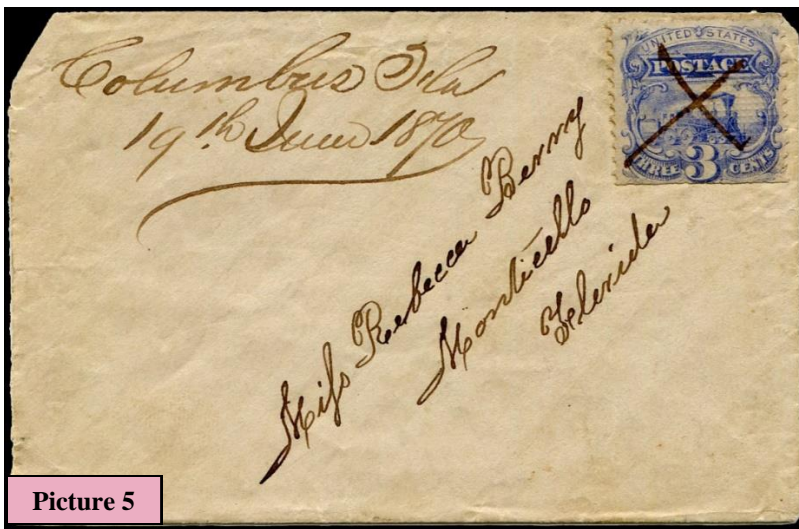 Columbus Fla
19th June 1870
UNITED STATES
POSTAGE
THREE 3 CENTS
Miss Rebecca Berry
Monticello
Florida
Picture 5